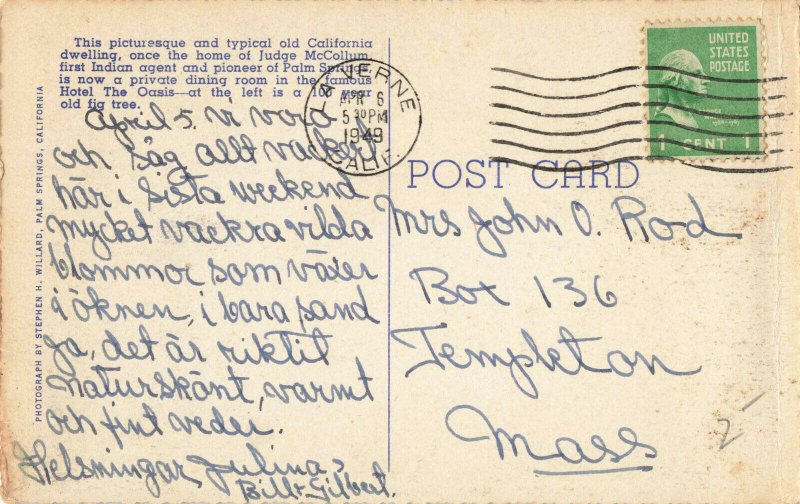 This picturesque and typical old California
dwelling, once the home of Judge McCollum,
first Indian agent and pioneer of Palm Springs,
is now a private dining room in the famous
Hotel The Oasis—at the left is a 100 year
old fig tree.
PHOTOGRAPH BY STEPHEN H. WILLARD, PALM SPRINGS, CALIFORNIA
April 5. vi voro
och såg allt vackert
här i sista weekend
mycket vackra vilda
blommor som växer
i öknen, i bara sand
ja, det är riktit
naturskönt, varmt
och fint veder.
Helsningar, Julina,
Bill + Gilbert.
LA VERNE
APR 6
5 30 PM
1949
CALIF.
UNITED
STATES
POSTAGE
1 CENT 1
POST CARD
Mrs John O. Rod
Box 136
Templeton
Mass
2-